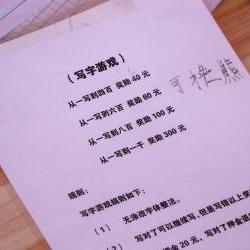 （写字游戏）
从一写到四百 奖励 40 元
从一写到六百 奖励 60 元
从一写到八百 奖励 100 元
从一写到一千 奖励 300 元
细则：
写字游戏规则如下：
（1） 无涂改字体整洁。
写对了可以继续写，但是写错以上奖
（2） 写对了押金
金 20 元，